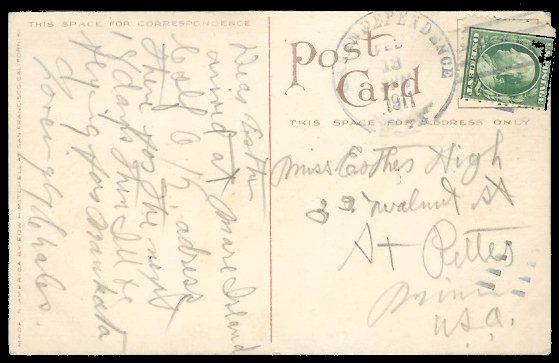 THIS SPACE FOR CORRESPONDENCE
Dear Esther
arrived at Mare Island
Cal O/K adress
there for the next
18 days then I'll be
for Mankato
Lovingly Charles.
MADE IN AMERICA BY EDW. H. MITCHELL AT SAN FRANCISCO, CALIFORNIA.
Post
Card
THIS SPACE FOR ADDRESS ONLY
INDEPENDENCE
13
1911
Miss Esther High
Walnut St
St Peter
Minn
U.S.A.